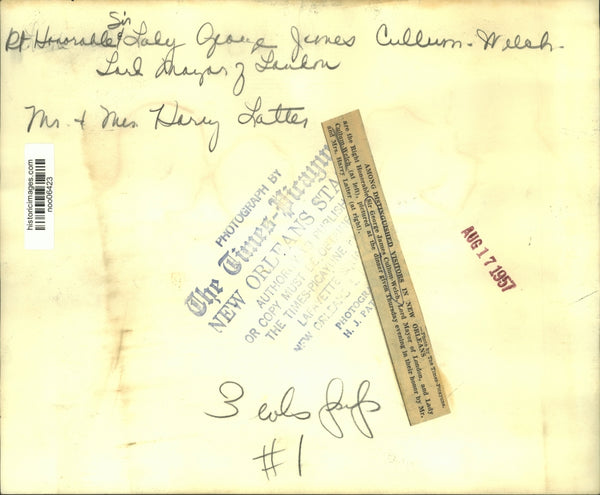 Sir
Rt. Honorable & Lady George James Cullum-Welch-
Lord Mayor of London
Mr. & Mrs. Harry Latter
historicimages.com
noo06423
PHOTOGRAPH BY
The Times-Picayune
NEW ORLEANS STA
AUTHOR
PUBLIC
OR COPY MUST
THE TIMES-PICAYUNE
LAFAYETTE
NEW ORLEANS
PHOTOG
H. J. PAT
—Photo by The Times-Picayune.
AMONG DISTINGUISHED VISITORS IN NEW ORLEANS
are the Right Honorable Sir George James Cullum-Welch, Lord Mayor of London, and Lady
Cullum-Welch (at left), pictured at the dinner given Thursday evening in their honor by Mr.
and Mrs. Harry Latter (at right).
AUG 17 1957
3 cols
#1